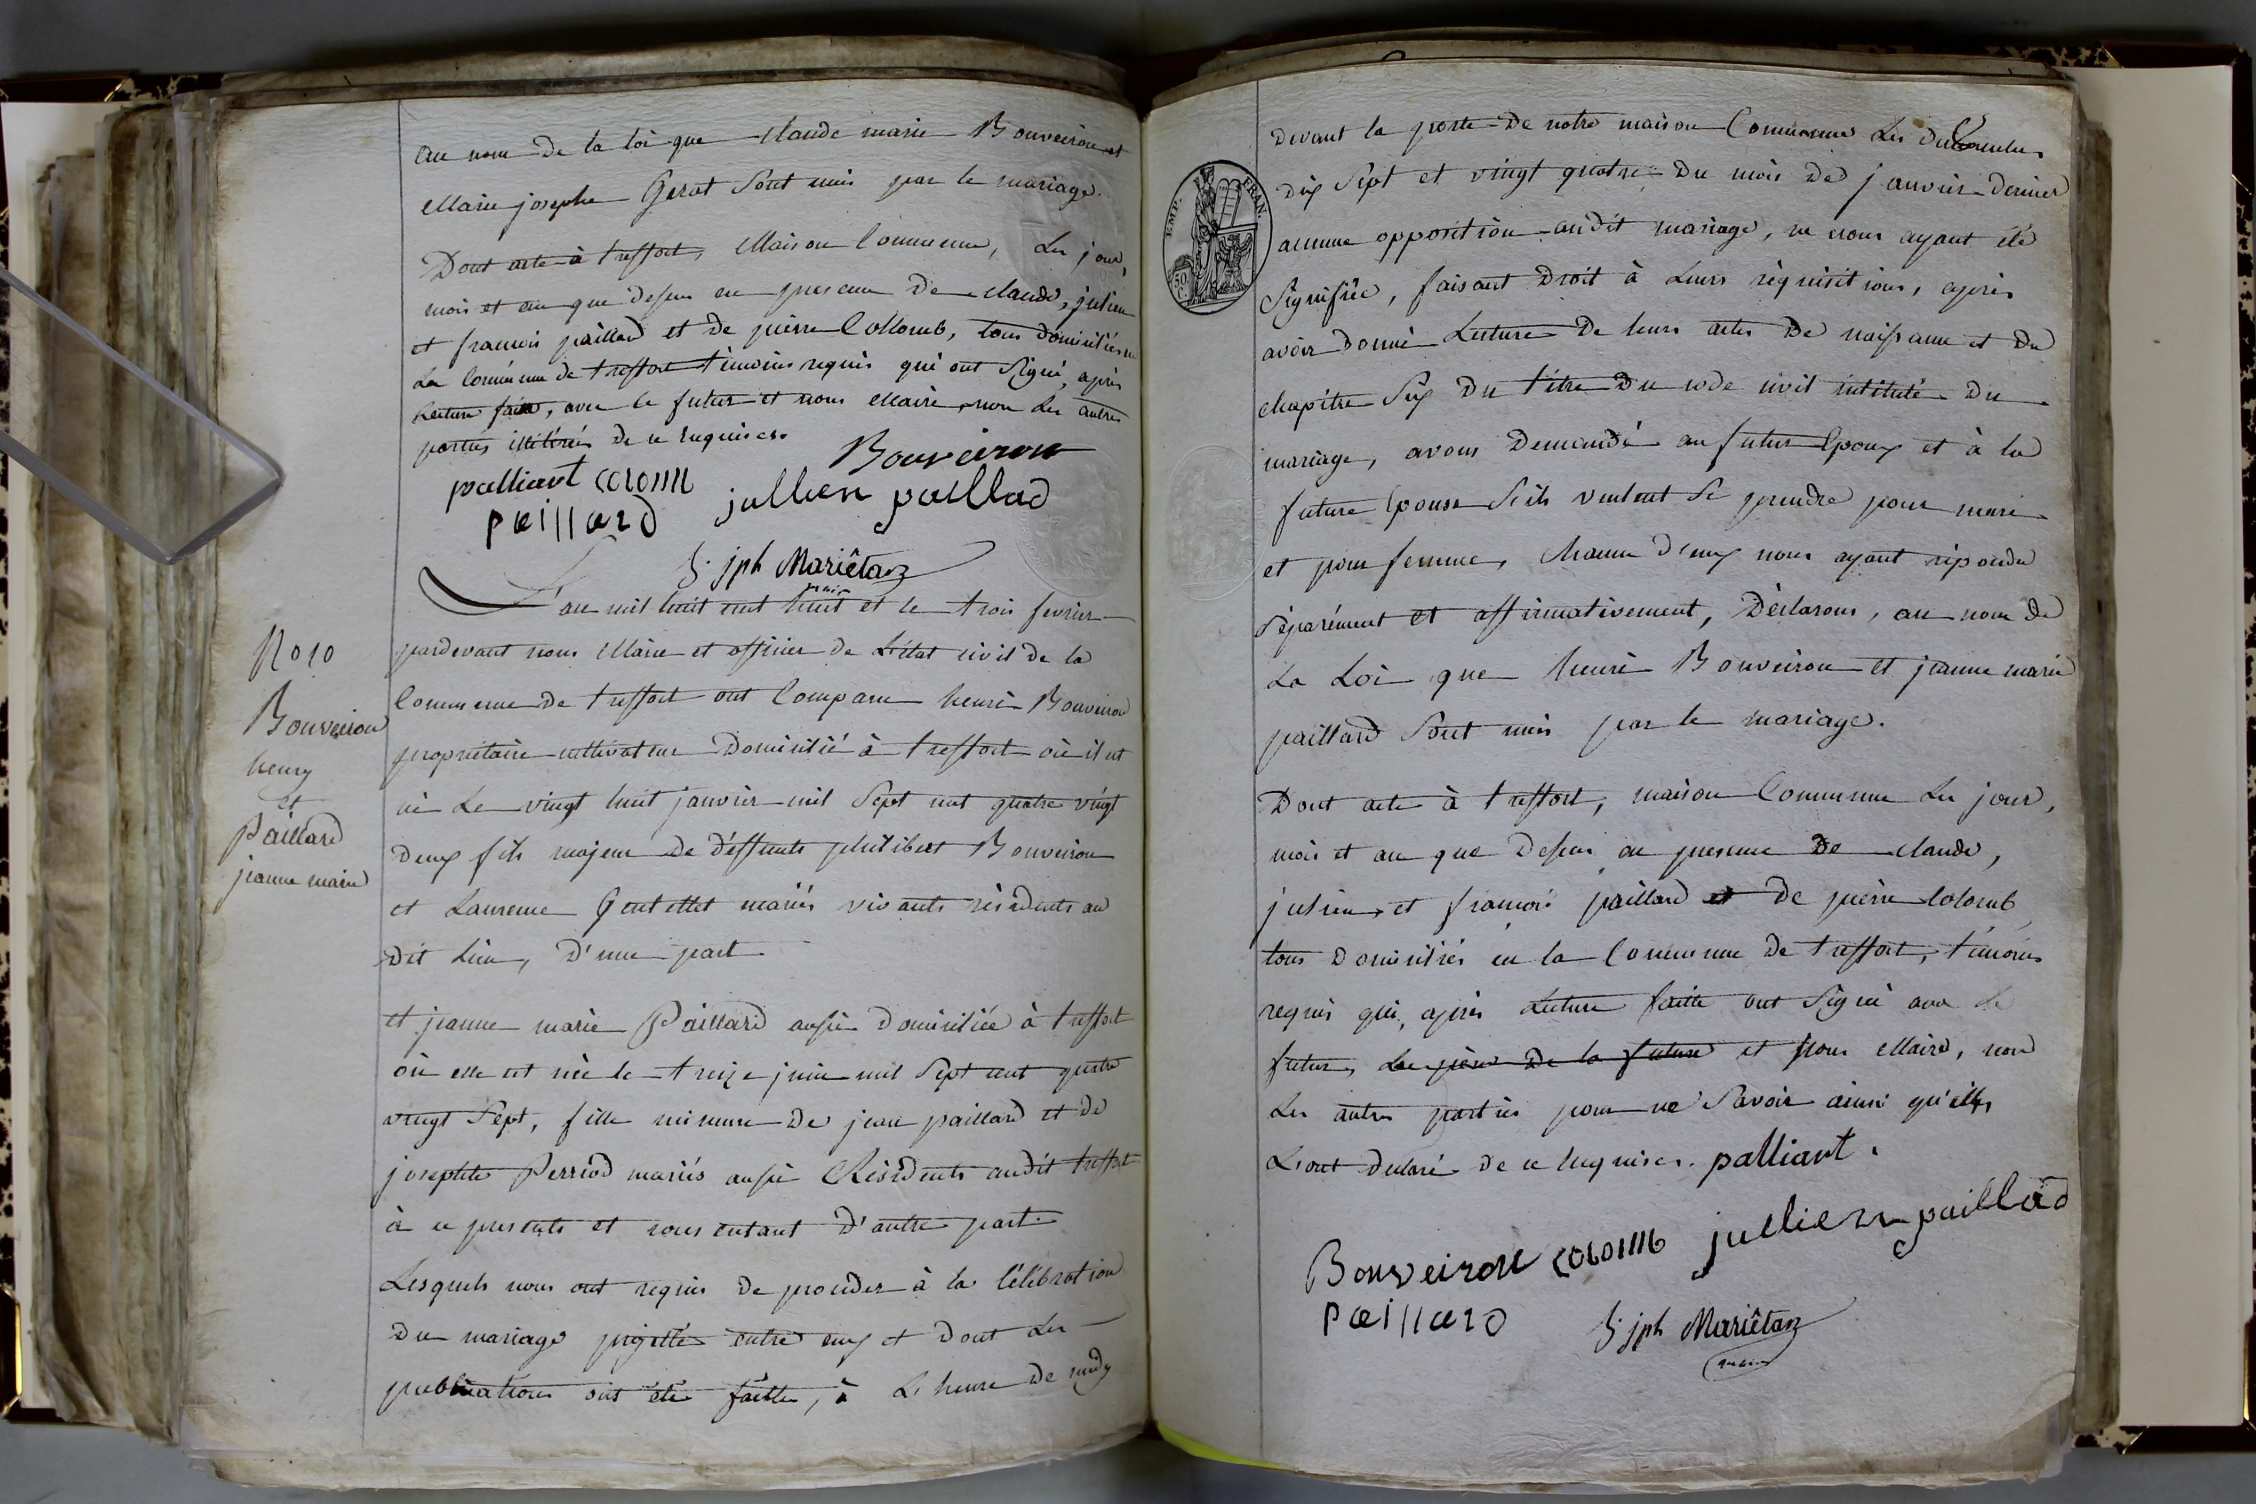 au nom de la loi que claude marie Bouveiron et
Marie josephe Gerat sont unis par le mariage.
Dont acte à treffort, Maison Commune, Les jour,
mois et an que dessus en presence de claude, julien
et francois paillard et de pierre Collomb, tous domiciliés en
La Commune de treffort témoins requis qui ont signé, après
Lecture faite, avec le futur et nous Maire, non Les autres
parties illitérés de ce requises.
Bouveiron
palliart colomb
jullien paillad
paillard
jph Mariétan
maire
L'an mil huit cent huit et le trois fevrier
pardevant nous Maire et officier de L'état civil de la
Commune de treffort ont Comparu henri Bouveiron
propriétaire cultivateur Domicilié à treffort où il est
né Le vingt huit janvier mil sept cent quatre vingt
deux fils majeur de déffunts philibert Bouveiron
et Laurence Gentellet mariés vivants résidents au
dit Lieu, d'une part
et jeanne marie Paillard aussi domiciliée à treffort
où elle est née le treize juin mil sept cent quatre
vingt sept, fille mineure de jean paillard et de
josephte Perriod mariés aussi Résidents audit treffort
à ce presents et consentant d'autre part.
Lesquels nous ont requis de proceder à la Célébration
du mariage projetté entre eux et dont Les
publications ont été faittes, à L'heure de midy
No 10
Bouveiron
henry
et
Paillard
jeanne marie
devant la porte de notre maison Commune Les
dix sept et vingt quatre du mois de janvier dernier
aucune opposition audit mariage, ne nous ayant été
signifiée, faisant droit à Leurs réquisitions, après
avoir donné Lecture de leurs actes de naissance et du
chapitre six du titre du code civil intitulé du
mariage, avons demandé au futur Epoux et à la
future Epouse s'ils veulent se prendre pour mari
et pour femme, chacun d'eux nous ayant répondu
séparément et affirmativement, Déclarons, au nom de
La Loi que henri Bouveiron et jeanne marie
paillard sont unis par le mariage.
Dont acte à treffort, maison Commune Les jour,
mois et an que dessus en presence de claude,
julien et francois paillard et de pierre Colomb
tous domiciliés en la Commune de treffort, témoins
requis qui, après Lecture faitte ont signé avec Le
futur, Le père de la future et Nous Maire, non
Les autres parties pour ne savoir ainsi qu'elles
L'ont declaré de ce requises. palliart.
Bouveiron colomb jullien paillad
paillard
jph Mariétan
maire
EMP. FRAN.
50 C.